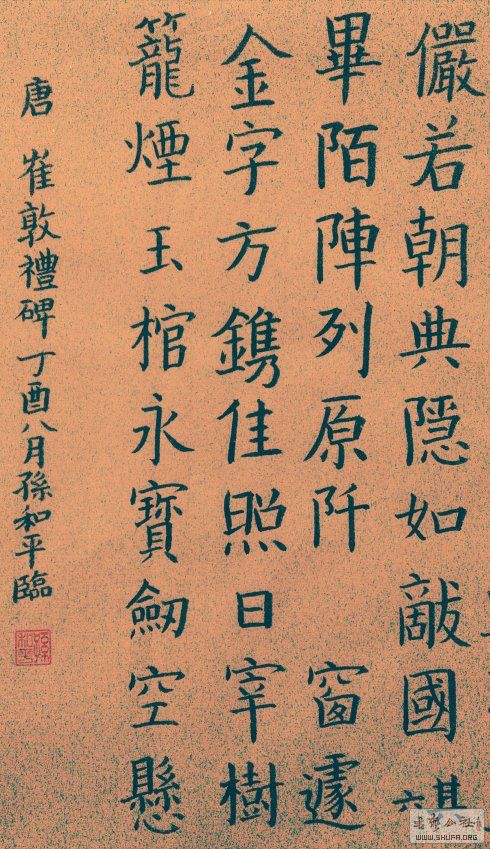 儼若朝典隱如敵國
畢陌陣列原阡 窗遽
金字方鐫佳照日宰樹
籠煙玉棺永寶劒空懸
唐 崔敦禮碑丁酉八月孫和平臨
WWW.SHUFA.ORG